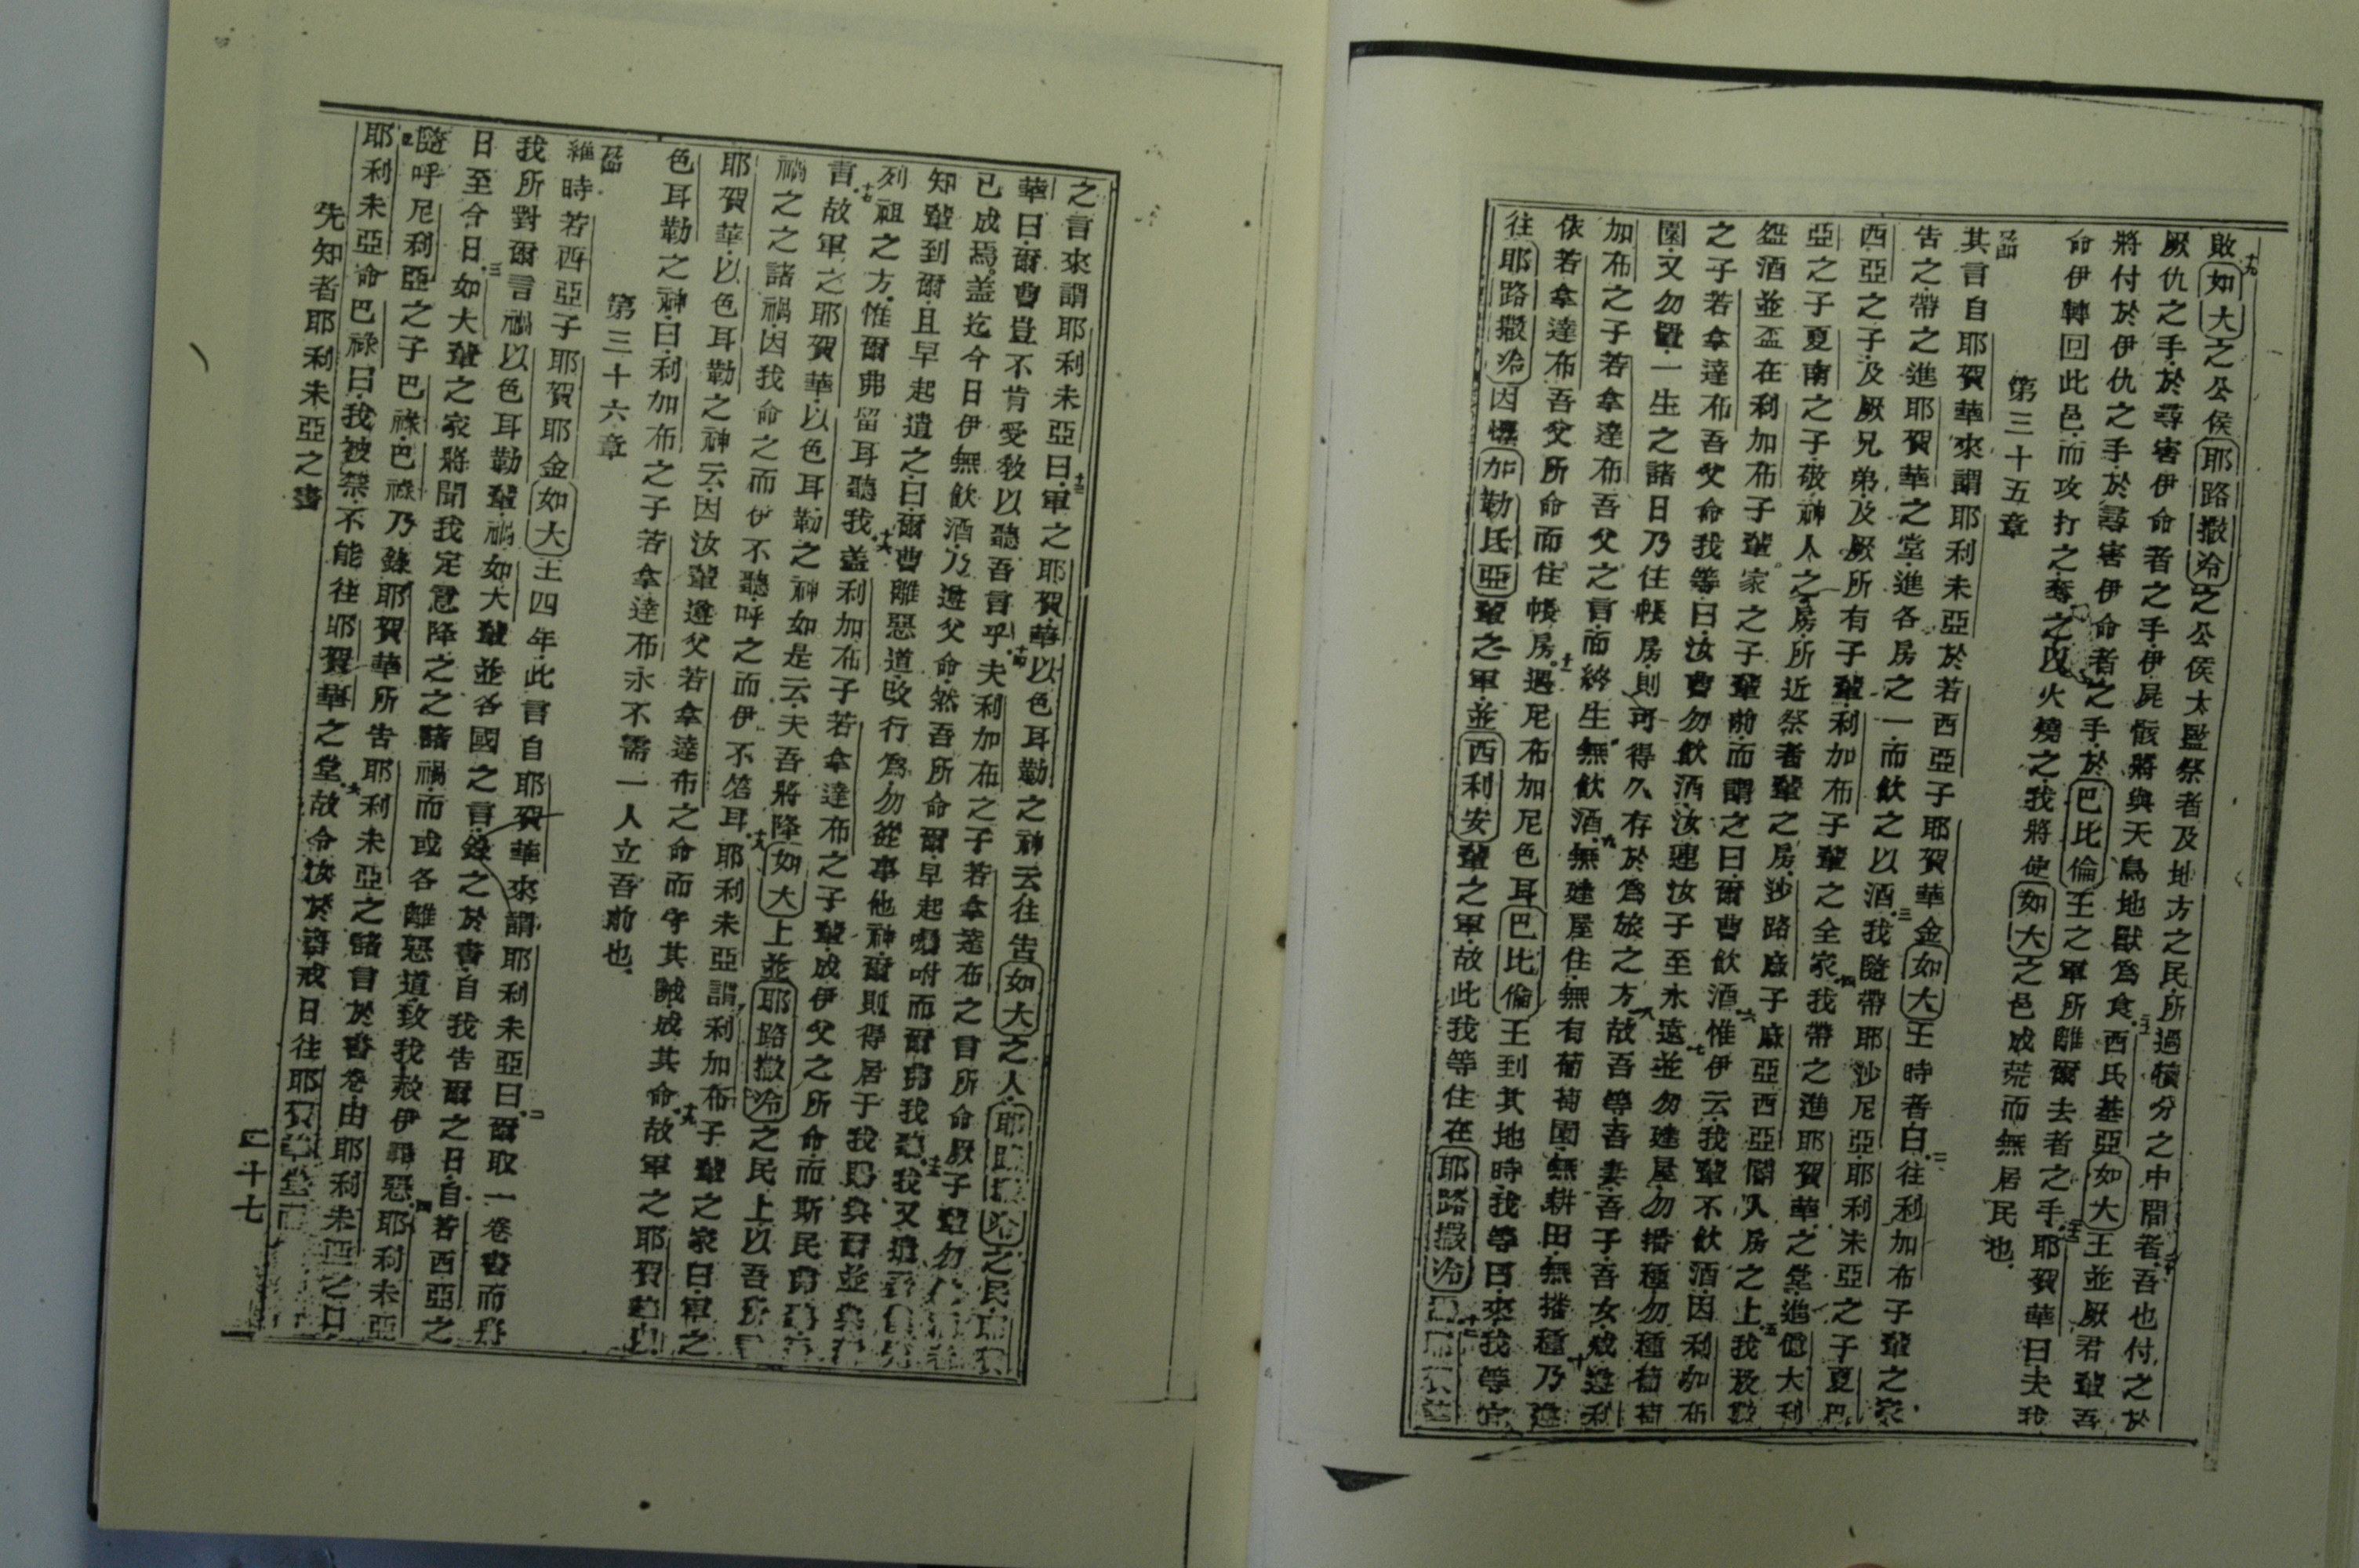 十九
啟如大之公侯耶路撒冷之公侯太監祭者及地方之民所過犢分之中間者吾也付之於
厥仇之手於尋害伊命者之手伊屍骸將與天鳥地獸為食西氏基亞如大王並厥君輩吾
將付於伊仇之手於尋害伊命者之手於巴比倫王之軍所離爾去者之手耶賀華曰夫我
命伊轉回此邑而攻打之奪之以火燒之我將使如大之邑成荒而無居民也
第三十五章
其言自耶賀華來謂耶利未亞於若西亞子耶賀華金如大王時者曰往利加布子輩之家
告之帶之進耶賀華之堂進各房之一而飲之以酒我隨帶耶沙尼亞耶利未亞之子夏巴
西亞之子及厥兄弟及厥所有子輩利加布子輩之全家我帶之進耶賀華之堂進億大利
亞之子夏南之子敬神人之房所近祭者輩之房沙路庶子麻亞西亞閽人房之上我及設
盌酒並盃在利加布子輩家之子輩前而謂之曰爾曹飲酒惟伊云我輩不飲酒因利加布
之子若拿達布吾父命我等曰汝曹勿飲酒汝連汝子至永遠並勿建屋勿播種勿種葡萄
園又勿置一生之諸日乃住帳房則可得久存於為旅之方故吾等吾妻吾子吾女咸遵利
加布之子若拿達布吾父之言而終生無飲酒無建屋住無有葡萄園無耕田無播種乃遵
依若拿達布吾父所命而住帳房遇尼布加尼色耳巴比倫王到其地時我等曰來我等宜
往耶路撒冷因懼加勒氐亞輩之軍並西利安輩之軍故此我等住在耶路撒冷
之言來謂耶利未亞曰軍之耶賀華以色耳勒之神云往告如大之人耶路撒冷之民
華曰爾曹豈不肯受教以聽吾言乎夫利加布之子若拿達布之言所命厥子輩勿
已成焉蓋迄今日伊無飲酒乃遵父命然吾所命爾早起囑咐而爾弗我聽我又遣
知輩到爾且早起遣之曰爾曹離惡道改行為勿從事他神爾則得居于我所與爾並與
列祖之方惟爾弗留耳聽我蓋利加布子若拿達布之子輩成伊父之所命而斯民弗
言故軍之耶賀華以色耳勒之神如是云夫吾將降如大上並耶路撒冷之民上以吾所
禍之之諸禍因我命之而伊不聽呼之而伊不答耳耶利未亞謂利加布子輩之家曰軍之
耶賀華以色耳勒之神云因汝輩遵父若拿達布之命而守其誡成其命故軍之耶賀華以
色耳勒之神曰利加布之子若拿達布永不需一人立吾前也
第三十六章
維時若西亞子耶賀耶金如大王四年此言自耶賀華來謂耶利未亞曰爾取一卷書而將
我所對爾言禍以色耳勒輩禍如大輩並各國之言錄之於書自我告爾之日自若西亞之
日至今日如大輩之家將聞我定意降之之諸禍而或各離惡道致我赦伊罪惡耶利未亞
隨呼尼利亞之子巴祿巴祿乃錄耶賀華所告耶利未亞之諸言於書卷由耶利未亞之口
耶利未亞命巴祿曰我被禁不能往耶賀華之堂故令汝於齋戒日往耶賀華堂而
先知者耶利未亞之書
二十七